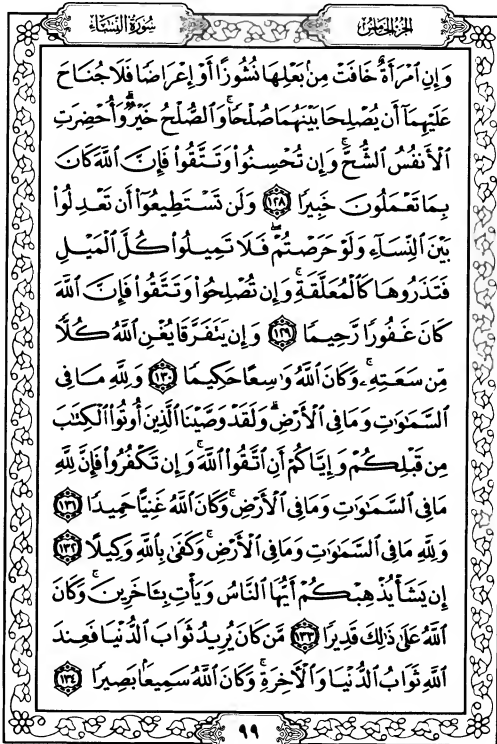 سُورَةُ النِّسَاءِ
الجُزْءُ الخَامِسُ
وَإِنِ ٱمْرَأَةٌ خَافَتْ مِنۢ بَعْلِهَا نُشُوزًا أَوْ إِعْرَاضًا فَلَا جُنَاحَ
عَلَيْهِمَآ أَن يُصْلِحَا بَيْنَهُمَا صُلْحًا ۚ وَٱلصُّلْحُ خَيْرٌ ۗ وَأُحْضِرَتِ
ٱلْأَنفُسُ ٱلشُّحَّ ۚ وَإِن تُحْسِنُوا۟ وَتَتَّقُوا۟ فَإِنَّ ٱللَّهَ كَانَ
بِمَا تَعْمَلُونَ خَبِيرًا ١٢٨ وَلَن تَسْتَطِيعُوٓا۟ أَن تَعْدِلُوا۟
بَيْنَ ٱلنِّسَآءِ وَلَوْ حَرَصْتُمْ ۖ فَلَا تَمِيلُوا۟ كُلَّ ٱلْمَيْلِ
فَتَذَرُوهَا كَٱلْمُعَلَّقَةِ ۚ وَإِن تُصْلِحُوا۟ وَتَتَّقُوا۟ فَإِنَّ ٱللَّهَ
كَانَ غَفُورًا رَّحِيمًا ١٢٩ وَإِن يَتَفَرَّقَا يُغْنِ ٱللَّهُ كُلًّا
مِّن سَعَتِهِۦ ۚ وَكَانَ ٱللَّهُ وَٰسِعًا حَكِيمًا ١٣٠ وَلِلَّهِ مَا فِى
ٱلسَّمَٰوَٰتِ وَمَا فِى ٱلْأَرْضِ ۗ وَلَقَدْ وَصَّيْنَا ٱلَّذِينَ أُوتُوا۟ ٱلْكِتَٰبَ
مِن قَبْلِكُمْ وَإِيَّاكُمْ أَنِ ٱتَّقُوا۟ ٱللَّهَ ۚ وَإِن تَكْفُرُوا۟ فَإِنَّ لِلَّهِ
مَا فِى ٱلسَّمَٰوَٰتِ وَمَا فِى ٱلْأَرْضِ ۚ وَكَانَ ٱللَّهُ غَنِيًّا حَمِيدًا ١٣١
وَلِلَّهِ مَا فِى ٱلسَّمَٰوَٰتِ وَمَا فِى ٱلْأَرْضِ ۚ وَكَفَىٰ بِٱللَّهِ وَكِيلًا ١٣٢
إِن يَشَأْ يُذْهِبْكُمْ أَيُّهَا ٱلنَّاسُ وَيَأْتِ بِـَٔاخَرِينَ ۚ وَكَانَ
ٱللَّهُ عَلَىٰ ذَٰلِكَ قَدِيرًا ١٣٣ مَّن كَانَ يُرِيدُ ثَوَابَ ٱلدُّنْيَا فَعِندَ
ٱللَّهِ ثَوَابُ ٱلدُّنْيَا وَٱلْءَاخِرَةِ ۚ وَكَانَ ٱللَّهُ سَمِيعًۢا بَصِيرًا ١٣٤
٩٩